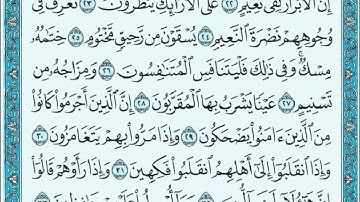 إِنَّ الْأَبْرَارَ لَفِي نَعِيمٍ ٢٢ عَلَى الْأَرَائِكِ يَنظُرُونَ ٢٣ تَعْرِفُ فِي
وُجُوهِهِمْ نَضْرَةَ النَّعِيمِ ٢٤ يُسْقَوْنَ مِن رَّحِيقٍ مَّخْتُومٍ ٢٥ خِتَامُهُ
مِسْكٌ ۚ وَفِي ذَٰلِكَ فَلْيَتَنَافَسِ الْمُتَنَافِسُونَ ٢٦ وَمِزَاجُهُ مِن
تَسْنِيمٍ ٢٧ عَيْنًا يَشْرَبُ بِهَا الْمُقَرَّبُونَ ٢٨ إِنَّ الَّذِينَ أَجْرَمُوا كَانُوا
مِنَ الَّذِينَ ءَامَنُوا يَضْحَكُونَ ٢٩ وَإِذَا مَرُّوا بِهِمْ يَتَغَامَزُونَ ٣٠
وَإِذَا انقَلَبُوا إِلَىٰ أَهْلِهِمُ انقَلَبُوا فَكِهِينَ ٣١ وَإِذَا رَأَوْهُمْ قَالُوا